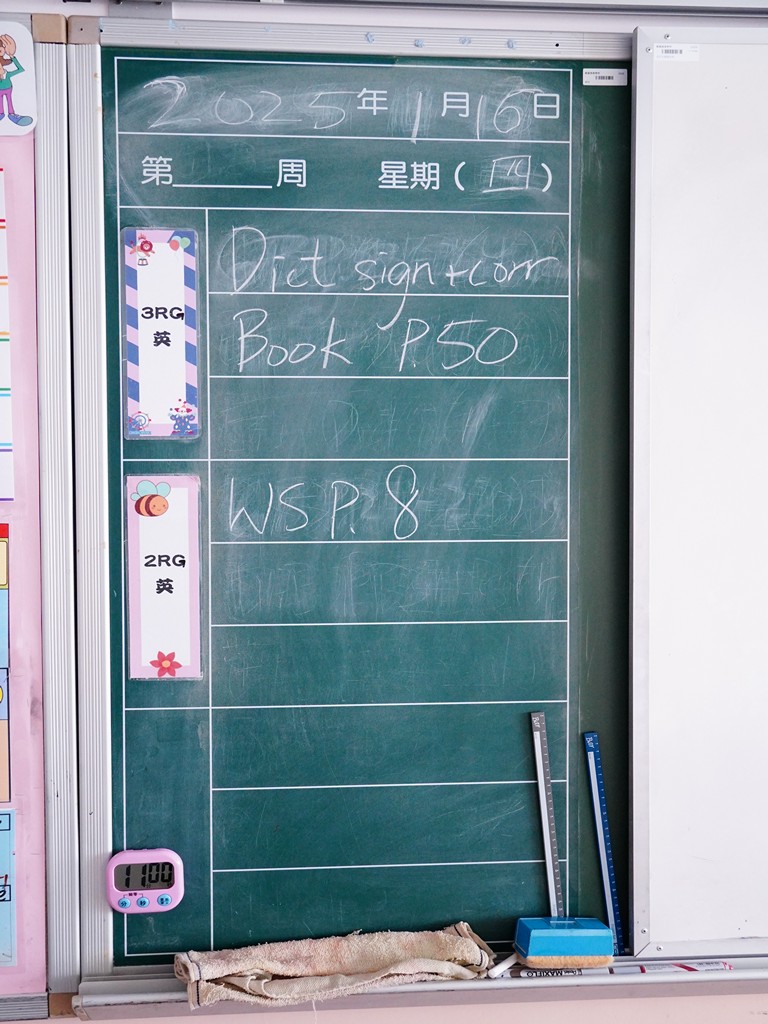 2025年1月16日
第____周 星期(四)
3RG
英
Dict sign+corr
Book P.50
2RG
英
WS P. 8
11:00
MAXIFLO